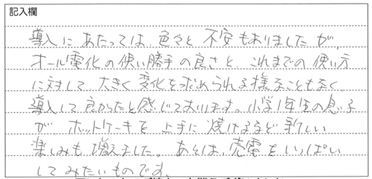 記入欄
導入にあたっては、色々と不安もありましたが
オール電化の使い勝手の良さと、これまでの使い方
に対して大きく変化を求められる様なこともなく
導入して良かったと感じております。小学1年生の息子
がホットケーキを上手に焼けるなど新しい
楽しみも増えました。あとは、売電をいっぱい
してみたいものです。